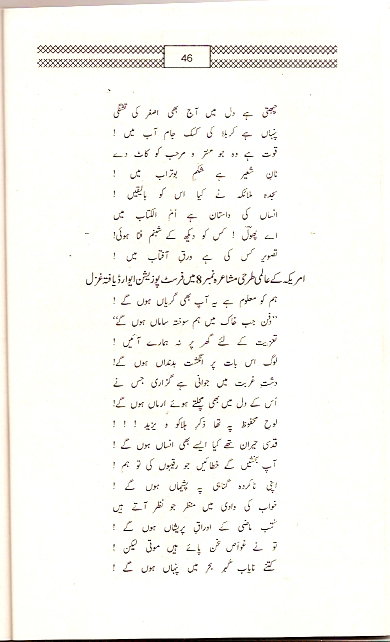 46
چبھتی ہے دل میں آج بھی اصغر کی تشنگی
پنہاں ہے کربلا کی کسک جام آب میں !
قوت ہے وہ جو عنتر و مرحب کو کاٹ دے
نان شعیر ہے شکم بوتراب میں !
سجدہ ملائکہ نے کیا اس کو بالیقیں !
انساں کی داستان ہے اُم الکتاب میں
اے پھولؔ ! کس کو دیکھ کے شبنم فنا ہوئی!
تصویر کس کی ہے ورقِ آفتاب میں !
امریکہ کے عالمی طرحی مشاعرہ نمبر 8 میں فرسٹ پوزیشن ایوارڈ یافتہ غزل
ہم کو معلوم ہے یہ آپ بھی گریاں ہوں گے !
”دفن جب خاک میں ہم سوختہ ساماں ہوں گے“
تعزیت کے لئے گھر پر نہ ہمارے آئیں !
لوگ اس بات پر انگشت بدنداں ہوں گے!
دشت غربت میں جوانی ہے گزاری جس نے
اُس کے دل میں بھی مچلتے ہوئے ارماں ہوں گے!
لوح محفوظ پہ تھا ذکر ہلاکو و یزید ! ! !
قدسی حیران تھے کیا ایسے بھی انساں ہوں گے !
آپ بخشیں گے خطائیں جو رقیبوں کی تو ہم !
اپنی ناکردہ گناہی پہ پشیماں ہوں گے !
خواب کی وادی میں منظر جو نظر آتے ہیں
کتب ماضی کے اوراق پریشاں ہوں گے !
تو نے غواص سخن پائے ہیں موتی لیکن !
کتنے نایاب گہر بحر میں پنہاں ہوں گے !